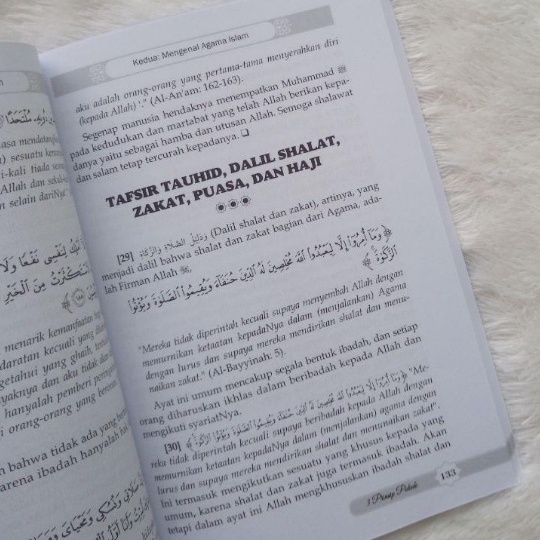 menarik kemanfaatan
daratan kecuali yang
getahui yang ghaib,
yaknya dan aku tidak
hanyalah pemberi peringa
i orang-orang yang
h bahwa tidak ada yang
karena ibadah hanyalah
Kedua: Mengenal Agama Islam
aku adalah orang-orang yang pertama-tama menyerahkan diri
(kepada Allah)'." (Al-An'am: 162-163).
Segenap manusia hendaknya menempatkan Muhammad ﷺ
pada kedudukan dan martabat yang telah Allah berikan kepa-
danya yaitu sebagai hamba dan utusan Allah. Semoga shalawat
dan salam tetap tercurah kepadanya. ❏
TAFSIR TAUHID, DALIL SHALAT,
ZAKAT, PUASA, DAN HAJI
[29] وَدَلِيْلُ الصَّلَاةِ وَالزَّكَاةِ (Dalil shalat dan zakat), artinya, yang
menjadi dalil bahwa shalat dan zakat bagian dari Agama, ada-
lah Firman Allah ﷻ,
﴿وَمَآ أُمِرُوٓا۟ إِلَّا لِيَعْبُدُوا۟ ٱللَّهَ مُخْلِصِينَ لَهُ ٱلدِّينَ حُنَفَآءَ وَيُقِيمُوا۟ ٱلصَّلَوٰةَ وَيُؤْتُوا۟
ٱلزَّكَوٰةَ﴾
"Mereka tidak diperintah kecuali supaya menyembah Allah dengan
memurnikan ketaatan kepadaNya dalam (menjalankan) Agama
dengan lurus dan supaya mereka mendirikan shalat dan menu-
naikan zakat." (Al-Bayyinah: 5).
Ayat ini umum mencakup segala bentuk ibadah, dan setiap
orang diharuskan ikhlas dalam beribadah kepada Allah dan
mengikuti syariatNya.
[30] ﴿وَمَآ أُمِرُوٓا۟ إِلَّا لِيَعْبُدُوا۟ ٱللَّهَ مُخْلِصِينَ لَهُ ٱلدِّينَ حُنَفَآءَ وَيُقِيمُوا۟ ٱلصَّلَوٰةَ وَيُؤْتُوا۟ ٱلزَّكَوٰةَ﴾ "Me-
reka tidak diperintah kecuali supaya beribadah kepada Allah dengan
memurnikan ketaatan kepadaNya dalam (menjalankan) agama dengan
lurus dan supaya mereka mendirikan shalat dan menunaikan zakat".
Ini termasuk mengikutkan sesuatu yang khusus kepada yang
umum, karena shalat dan zakat juga termasuk ibadah. Akan
tetapi dalam ayat ini Allah mengkhususkan ibadah shalat dan
3 Prinsip Pokok
133